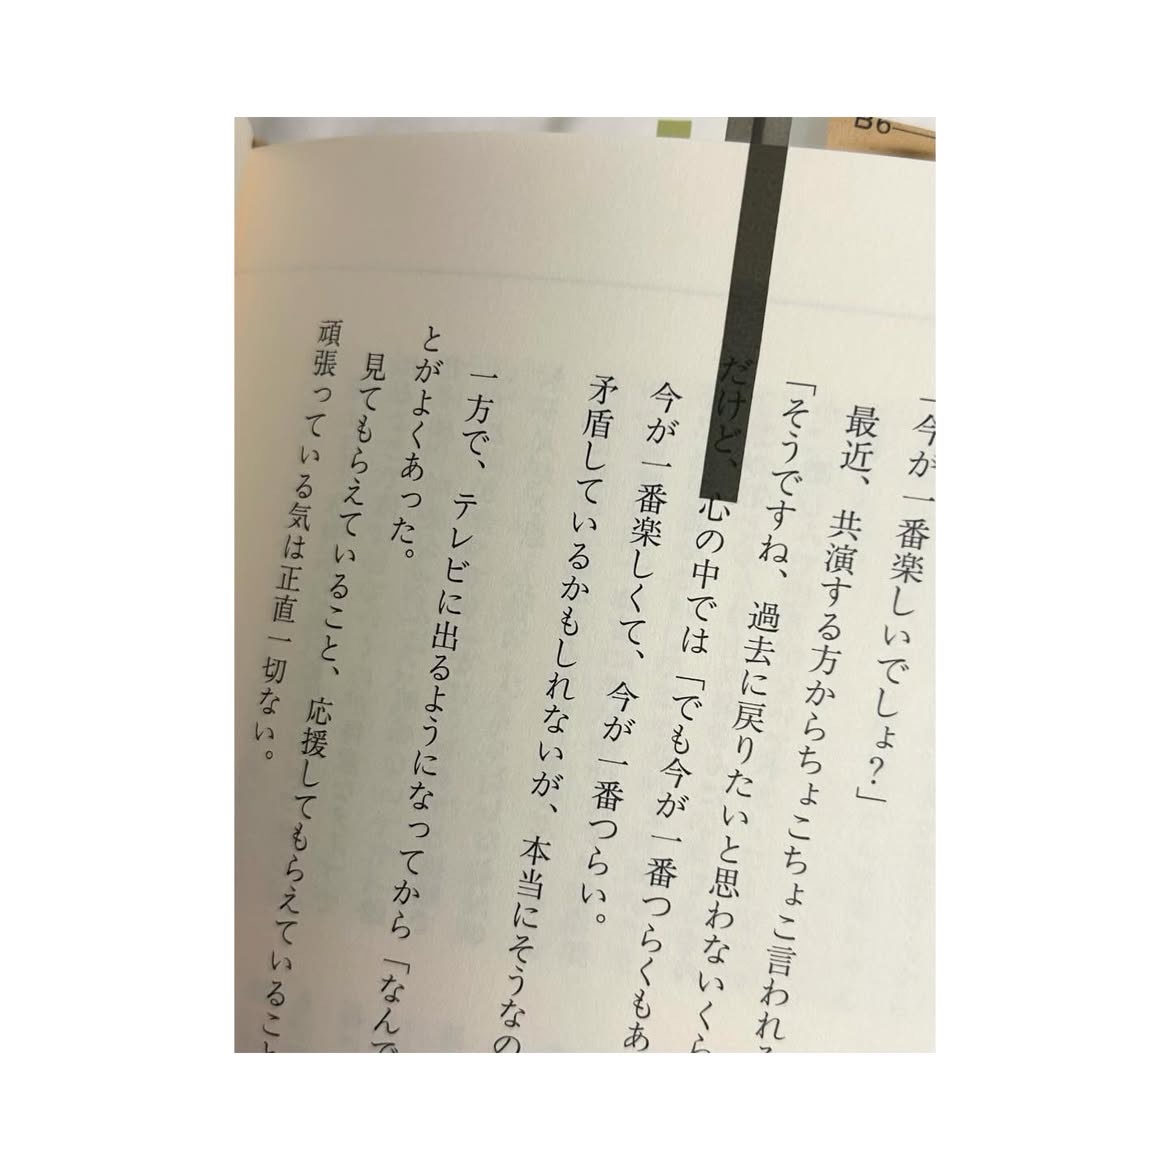 B6
「今が一番楽しいでしょ？」
最近、共演する方からちょこちょこ言われる
「そうですね、過去に戻りたいと思わないくら
だけど、心の中では「でも今が一番つらくもあ
今が一番楽しくて、今が一番つらい。
矛盾しているかもしれないが、本当にそうなの
一方で、テレビに出るようになってから「なんで
とがよくあった。
見てもらえていること、応援してもらえていること
頑張っている気は正直一切ない。